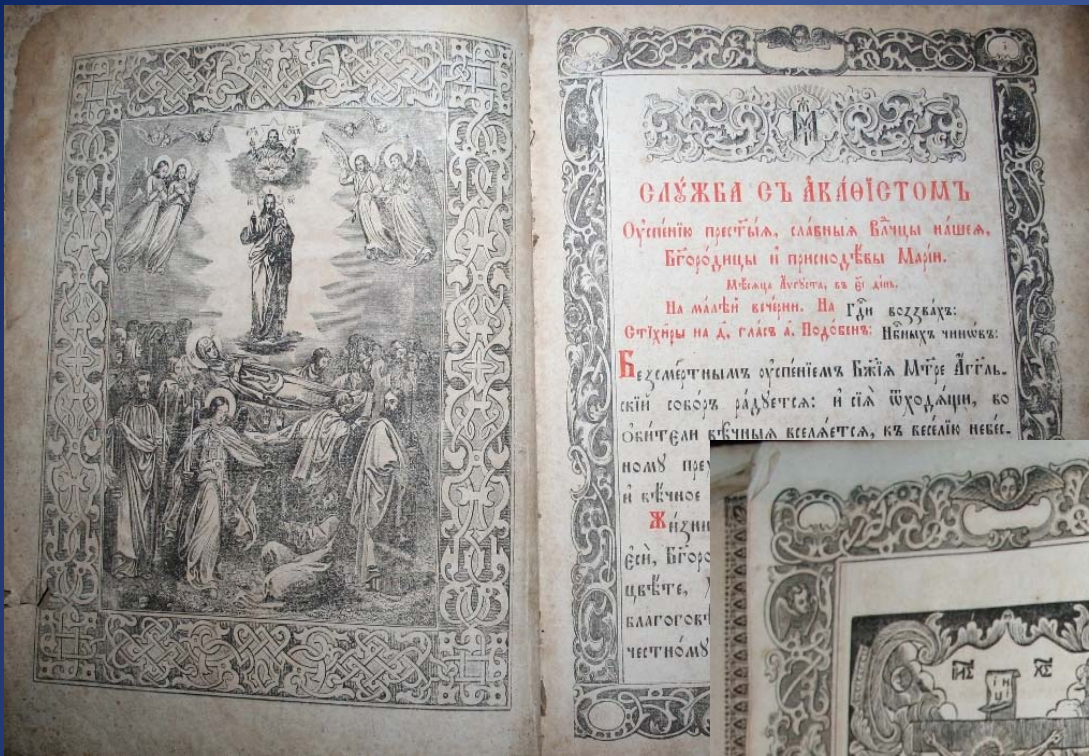 СЛУ́ЖБА СЪ А҆КА́ѲІСТОМЪ
Оу҆спе́нїю прест҃ы́ѧ, сла́вныѧ влⷣчцы на́шеѧ,
Бг҃оро́дицы и҆ приснодѣ́вы Марі́и.
Мѣ́сѧца А҆́ѵгꙋста, въ є҃і де́нь.
На ма́лѣй вече́рни. На Гдⷭ҇и воззва́хъ:
Стїхи́ры на д҃, гла́съ а҃. Подо́бенъ: Нбⷭ҇ныхъ чинѡ́въ:
Безсме́ртнымъ оу҆спе́нїемъ Бж҃їѧ Мт҃ре А҆́гг҃ль-
скїй собо́ръ ра́дꙋетсѧ: и҆ сїѧ̀ ѿходѧ́щи, во
ѻ҆би́тели вѣ́чныѧ вселѧ́етсѧ, къ весе́лїю небе́с-
номꙋ
и҆ вѣ́чное
є҆сѝ, Бг҃оро
цвѣ́те,
благогов
честно́мꙋ
І҆И҃С Х҃С
І Н
Ц І